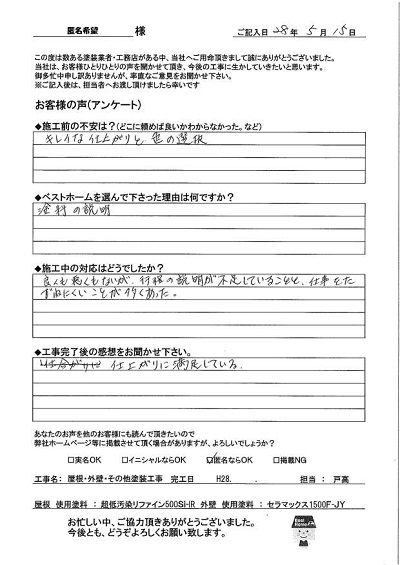 匿名希望 様 ご記入日 28年 5月 15日
この度は数ある塗装業者・工務店がある中、当社へご用命頂きまして誠にありがとうございました。
当社は、お客様ひとりひとりの声を聞かせて頂き、今後の工事に生かしていきたいと思います。
御多忙中申し訳ありませんが、率直なご意見をお聞かせ下さい。
※ご記入後は、担当者へお渡し頂けましたら幸いです
お客様の声(アンケート)
◆施工前の不安は?(どこに頼めば良いかわからなかった。など)
キレイな仕上がりと色の選択
◆ベストホームを選んで下さった理由は何ですか?
塗料の説明
◆施工中の対応はどうでしたか?
良くも悪くもないが、行程の説明が不足していることと、仕事をた
ずねにくいことが多くあった。
◆工事完了後の感想をお聞かせ下さい。
仕上がりに満足している。
あなたのお声を他のお客様にも読んで頂きたいので
弊社ホームページ等に掲載させて頂く場合がありますが、よろしいでしょうか?
□実名OK □イニシャルならOK ☑匿名ならOK □掲載NG
工事名: 屋根・外壁・その他塗装工事 完工日 H28. . 担当: 戸高
屋根 使用塗料:超低汚染リファイン500Si-IR 外壁 使用塗料:セラマックス1500F-JY
お忙しい中、ご協力頂きありがとうございました。
今後とも、どうぞよろしくお願い致します。
Best Home